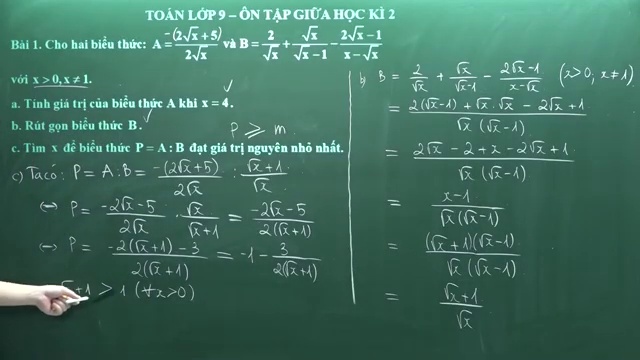 TOÁN LỚP 9 – ÔN TẬP GIỮA HỌC KÌ 2
Bài 1. Cho hai biểu thức: A = -(2√x+5)/2√x và B = 2/√x + √x/(√x-1) - (2√x-1)/(x-√x)
với x > 0, x ≠ 1.
a. Tính giá trị của biểu thức A khi x = 4.
b. Rút gọn biểu thức B.
P ⩾ m
c. Tìm x để biểu thức P = A : B đạt giá trị nguyên nhỏ nhất.
c) Ta có: P = A : B = -(2√x+5)/2√x : (√x+1)/√x
⇔ P = (-2√x-5)/2√x . √x/(√x+1) = (-2√x-5)/2(√x+1)
⇔ P = (-2(√x+1)-3)/2(√x+1) = -1 - 3/2(√x+1)
+1 > 1 (∀x>0)
b) B = 2/√x + √x/(√x-1) - (2√x-1)/(x-√x) (x>0; x≠1)
= (2(√x-1)+√x.√x - 2√x+1)/√x(√x-1)
= (2√x - 2 + x - 2√x + 1)/√x(√x-1)
= (x-1)/√x(√x-1)
= (√x+1)(√x-1)/√x(√x-1)
= (√x+1)/√x